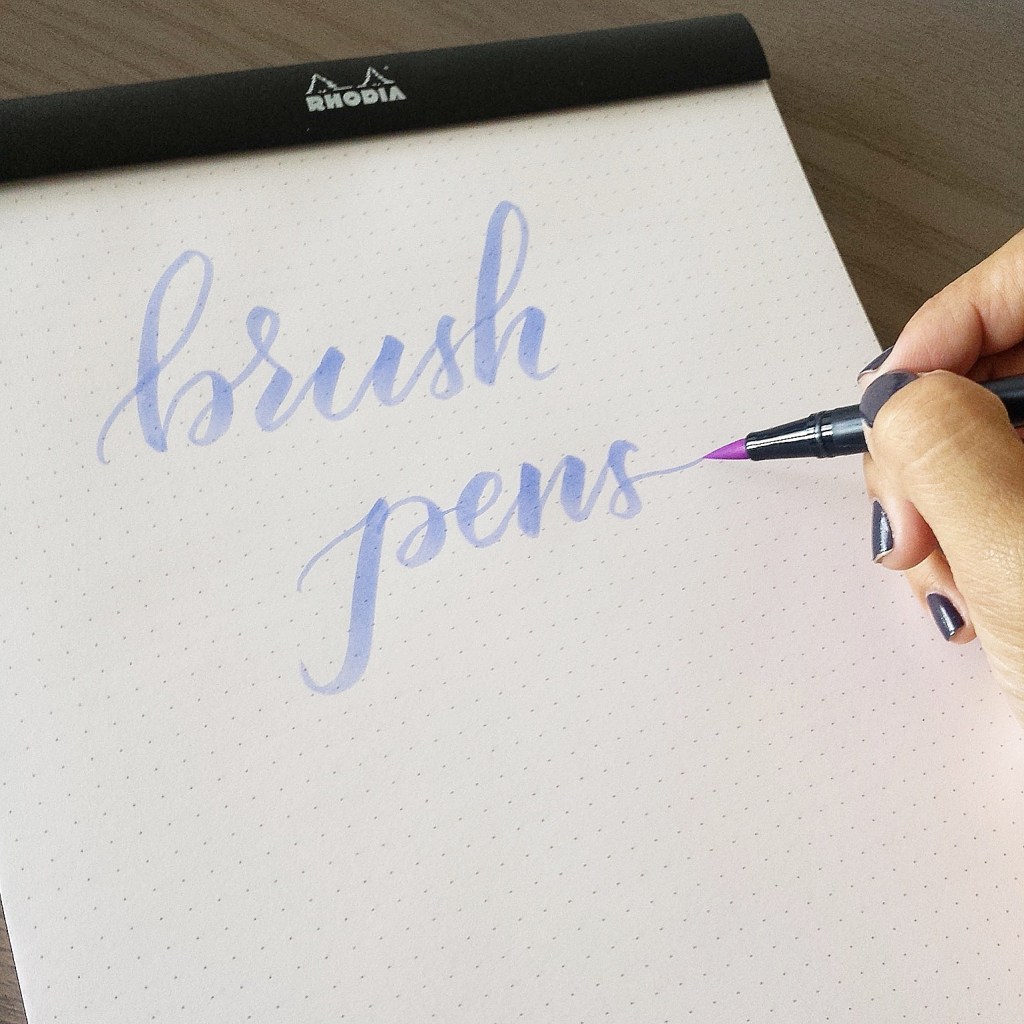 RHODIA
brush
pens